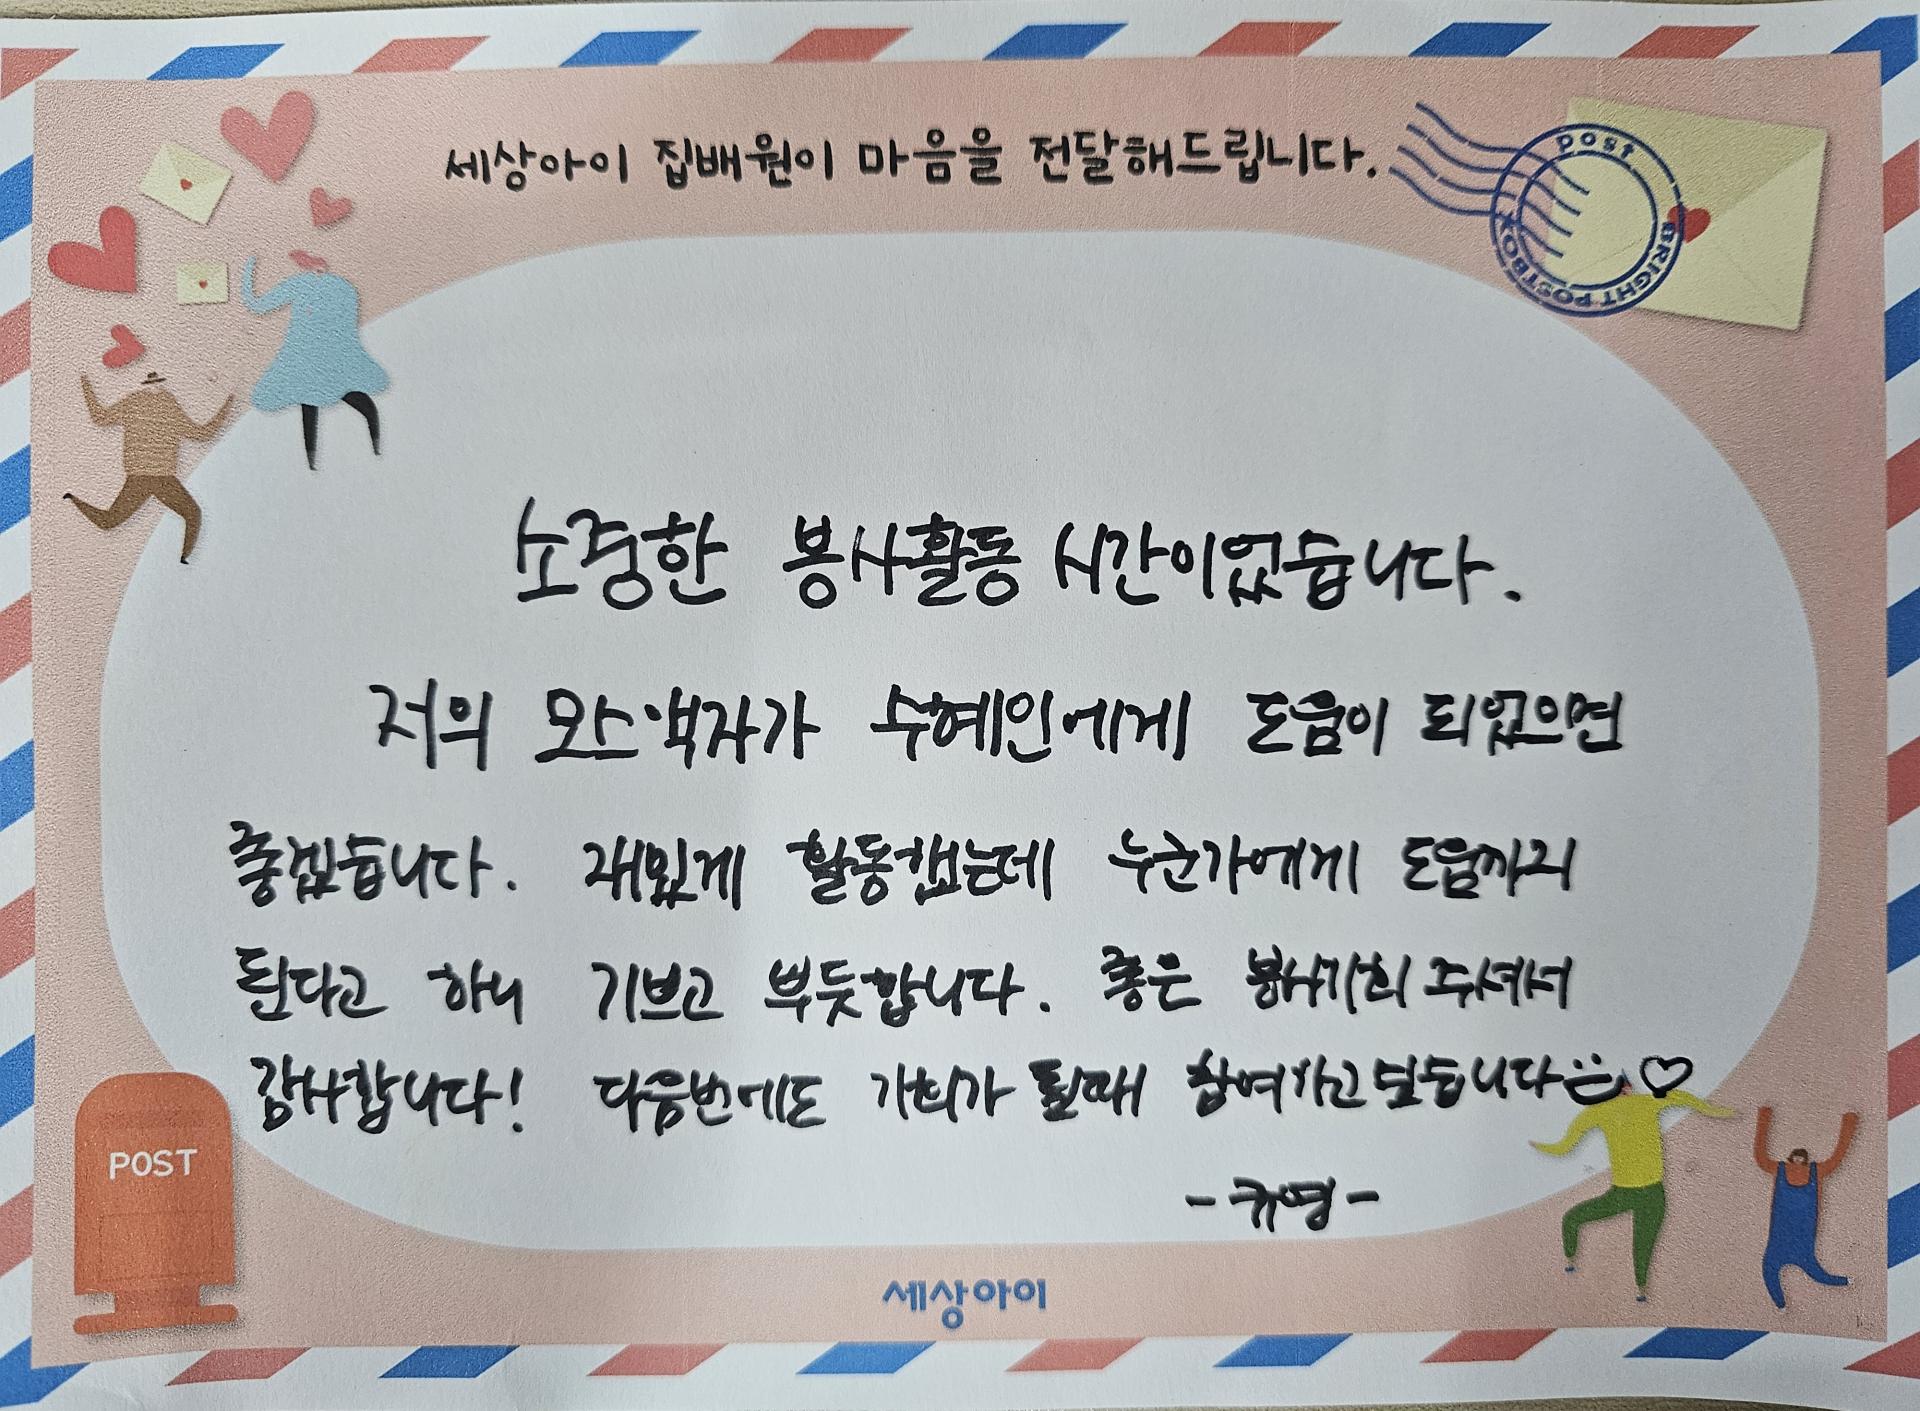 세상아이 집배원이 마음을 전달해드립니다.
post
BRIGHT POSTBOX
소중한 봉사활동 시간이었습니다.
저의 모스액자가 수혜인에게 도움이 되었으면
좋겠습니다. 재밌게 활동했는데 누군가에게 도움까지
된다고 하니 기쁘고 뿌듯합니다. 좋은 봉사기회 주셔서
감사합니다! 다음번에도 기회가 될때 참여하고 싶습니다
POST
- 규영 -
세상아이